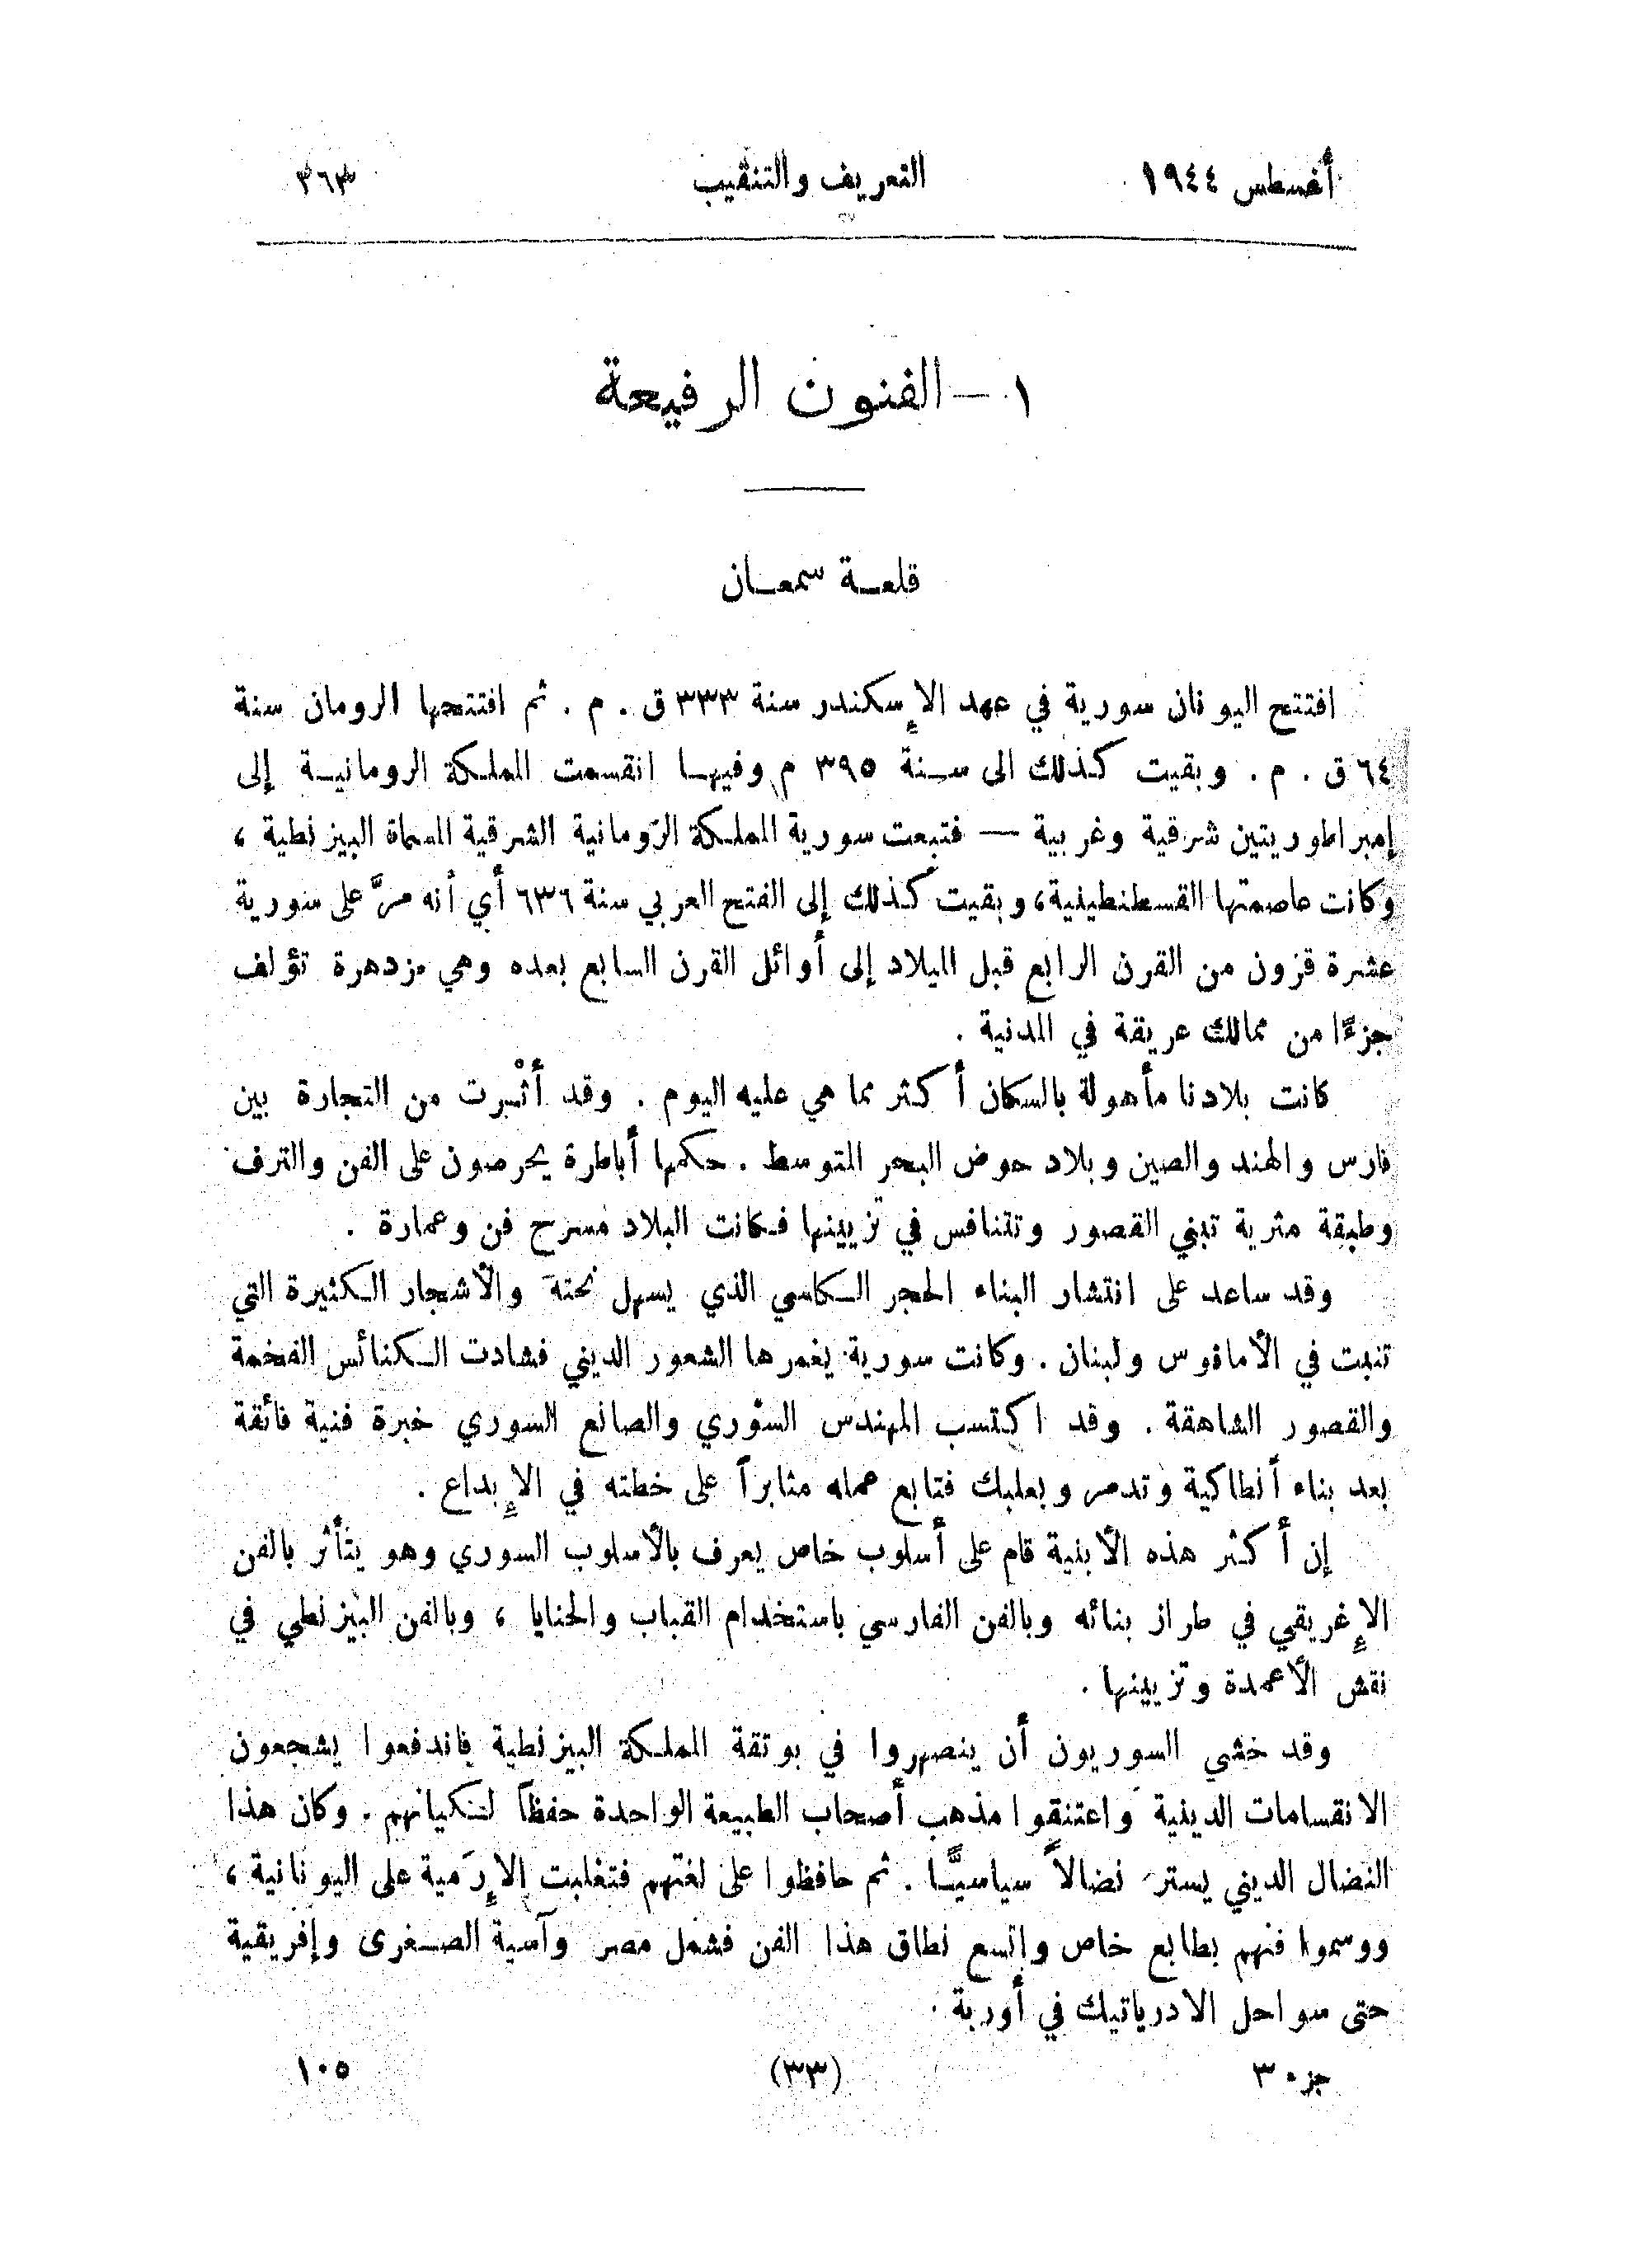 أغسطس ١٩٤٤ التعريف والتنقيب ٣٦٣
١ - الفنون الرفيعة
قلعة سمعان
افتتح اليونان سورية في عهد الإسكندر سنة ٣٣٣ ق . م . ثم افتتحها الرومان سنة
٦٤ ق . م . وبقيت كذلك الى سنة ٣٩٥ م وفيها انقسمت المملكة الرومانية إلى
إمبراطوريتين شرقية وغربية — فتبعت سورية المملكة الرومانية الشرقية المسماة البيزنطية ،
وكانت عاصمتها القسطنطينية، وبقيت كذلك إلى الفتح العربي سنة ٦٣٦ أي أنه مرَّ على سورية
عشرة قرون من القرن الرابع قبل الميلاد إلى أوائل القرن السابع بعده وهي مزدهرة تؤلف
جزءًا من ممالك عريقة في المدنية .
كانت بلادنا مأهولة بالسكان أكثر مما هي عليه اليوم . وقد أثْرت من التجارة بين
فارس والهند والصين وبلاد حوض البحر المتوسط . حكمها أباطرة يحرصون على الفن والترف
وطبقة مثرية تبني القصور وتتنافس في تزيينها فكانت البلاد مسرح فن وعمارة .
وقد ساعد على انتشار البناء الحجر الكلسي الذي يسهل نحته والأشجار الكثيرة التي
تنبت في الأمانوس ولبنان . وكانت سورية يغمرها الشعور الديني فشادت الكنائس الفخمة
والقصور الشاهقة . وقد اكتسب المهندس السوري والصانع السوري خبرة فنية فائقة
بعد بناء أنطاكية وتدمر وبعلبك فتابع عمله مثابراً على خطته في الإبداع .
إن أكثر هذه الأبنية قام على أسلوب خاص يعرف بالأسلوب السوري وهو يتأثر بالفن
الإغريقي في طراز بنائه وبالفن الفارسي باستخدام القباب والحنايا ، وبالفن البيزنطي في
نقش الأعمدة وتزيينها .
وقد خشي السوريون أن ينصهروا في بوتقة المملكة البيزنطية فاندفعوا يشجعون
الانقسامات الدينية واعتنقوا مذهب أصحاب الطبيعة الواحدة حفظاً لكيانهم . وكان هذا
النضال الديني يستر نضالاً سياسيًّا . ثم حافظوا على لغتهم فتغلبت الإرَمية على اليونانية ،
ووسموا فنهم بطابع خاص واتسع نطاق هذا الفن فشمل مصر وآسية الصغرى وإفريقية
حتى سواحل الادرياتيك في أوربة .
جزء ٣ (٣٣) ١٠٥